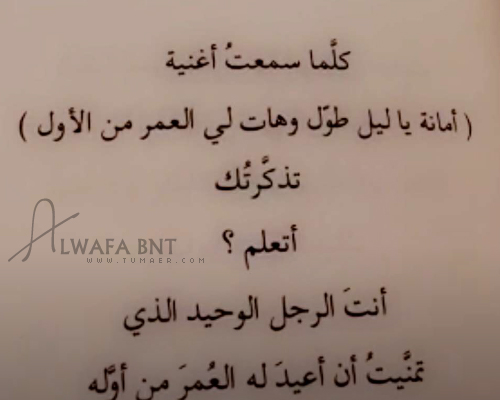 كلَّما سمعتُ أغنية
( أمانة يا ليل طوّل وهات لي العمر من الأول )
تذكَّرتُك
أتعلم ؟
ALWAFA BNT
WWW.TUMAER.COM
أنتَ الرجل الوحيد الذي
تمنَّيتُ أن أعيدَ له العُمرَ من أوَّله